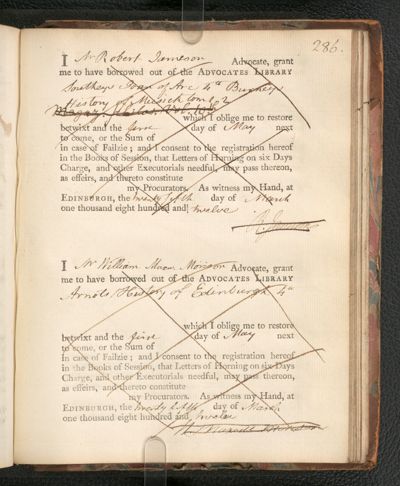 286.
I Mr Robert Jameson Advocate, grant
me to have borrowed out of the ADVOCATES LIBRARY
Southeys Joan of Arc 4to Burneys
History of Musick vol
which I oblige me to restore
betwixt and the first day of May next
to come, or the Sum of
in case of Failzie; and I consent to the registration hereof
in the Books of Session, that Letters of Horning on six Days
Charge, and other Executorials needful, may pass thereon,
as effeirs, and thereto constitute
my Procurators. As witness my Hand, at
EDINBURGH, the twenty fifth day of March
one thousand eight hundred and twelve
I Mr William Maxn Morison Advocate, grant
me to have borrowed out of the ADVOCATES LIBRARY
Arnots History of Edinburgh 4to
which I oblige me to restore
betwixt and the first day of May next
to come, or the Sum of
in case of Failzie; and I consent to the registration hereof
in the Books of Session, that Letters of Horning on six Days
Charge, and other Executorials needful, may pass thereon,
as effeirs, and thereto constitute
my Procurators. As witness my Hand, at
EDINBURGH, the twenty fifth day of March
one thousand eight hundred and twelve